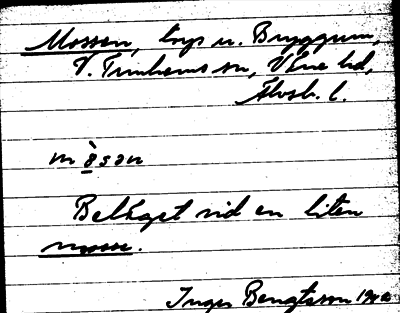 Mossen, torp u. Bryggum,
V. Tunhems sn, Väne hd,
Älvsb. l.
m òsən
Beläget vid en liten
mosse.
Inger Bengtsson